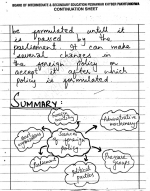 BOARD OF INTERMEDIATE & SECONDARY EDUCATION
CONTINUATION SHEET
be formulated until it
is passed by the
parliament. It can make
several changes in
the foreign policy or
accept it after which
policy is formulated
SUMMARY:
Foreign
ministry
Administrative
machinery
Sources
of foreign
policy
Pressure
groups
Parliament
Political
parties